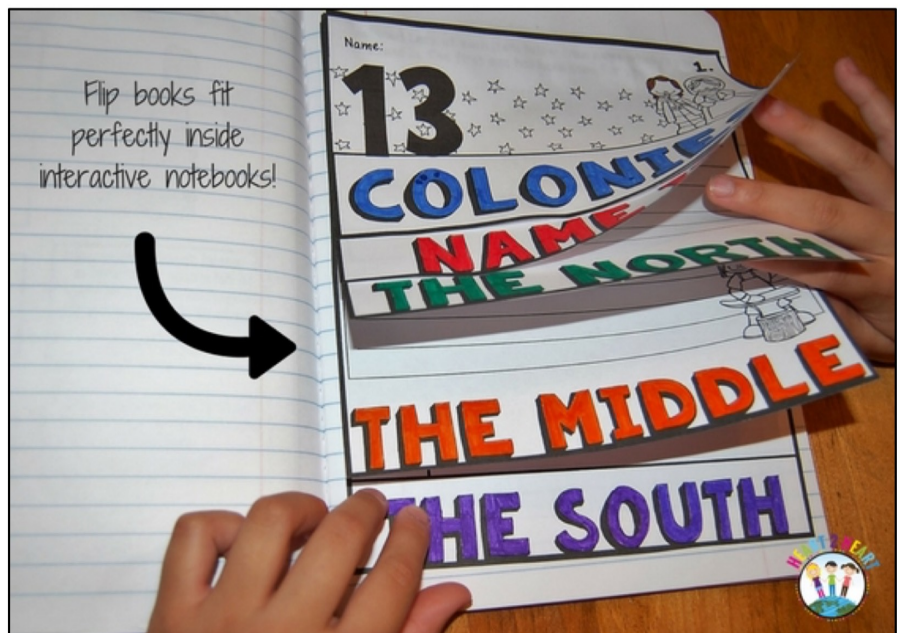 Flip books fit
perfectly inside
interactive notebooks!
Name:
1.
13
COLONIE
NAME
THE NORTH
THE MIDDLE
THE SOUTH
HEART 2 HEART